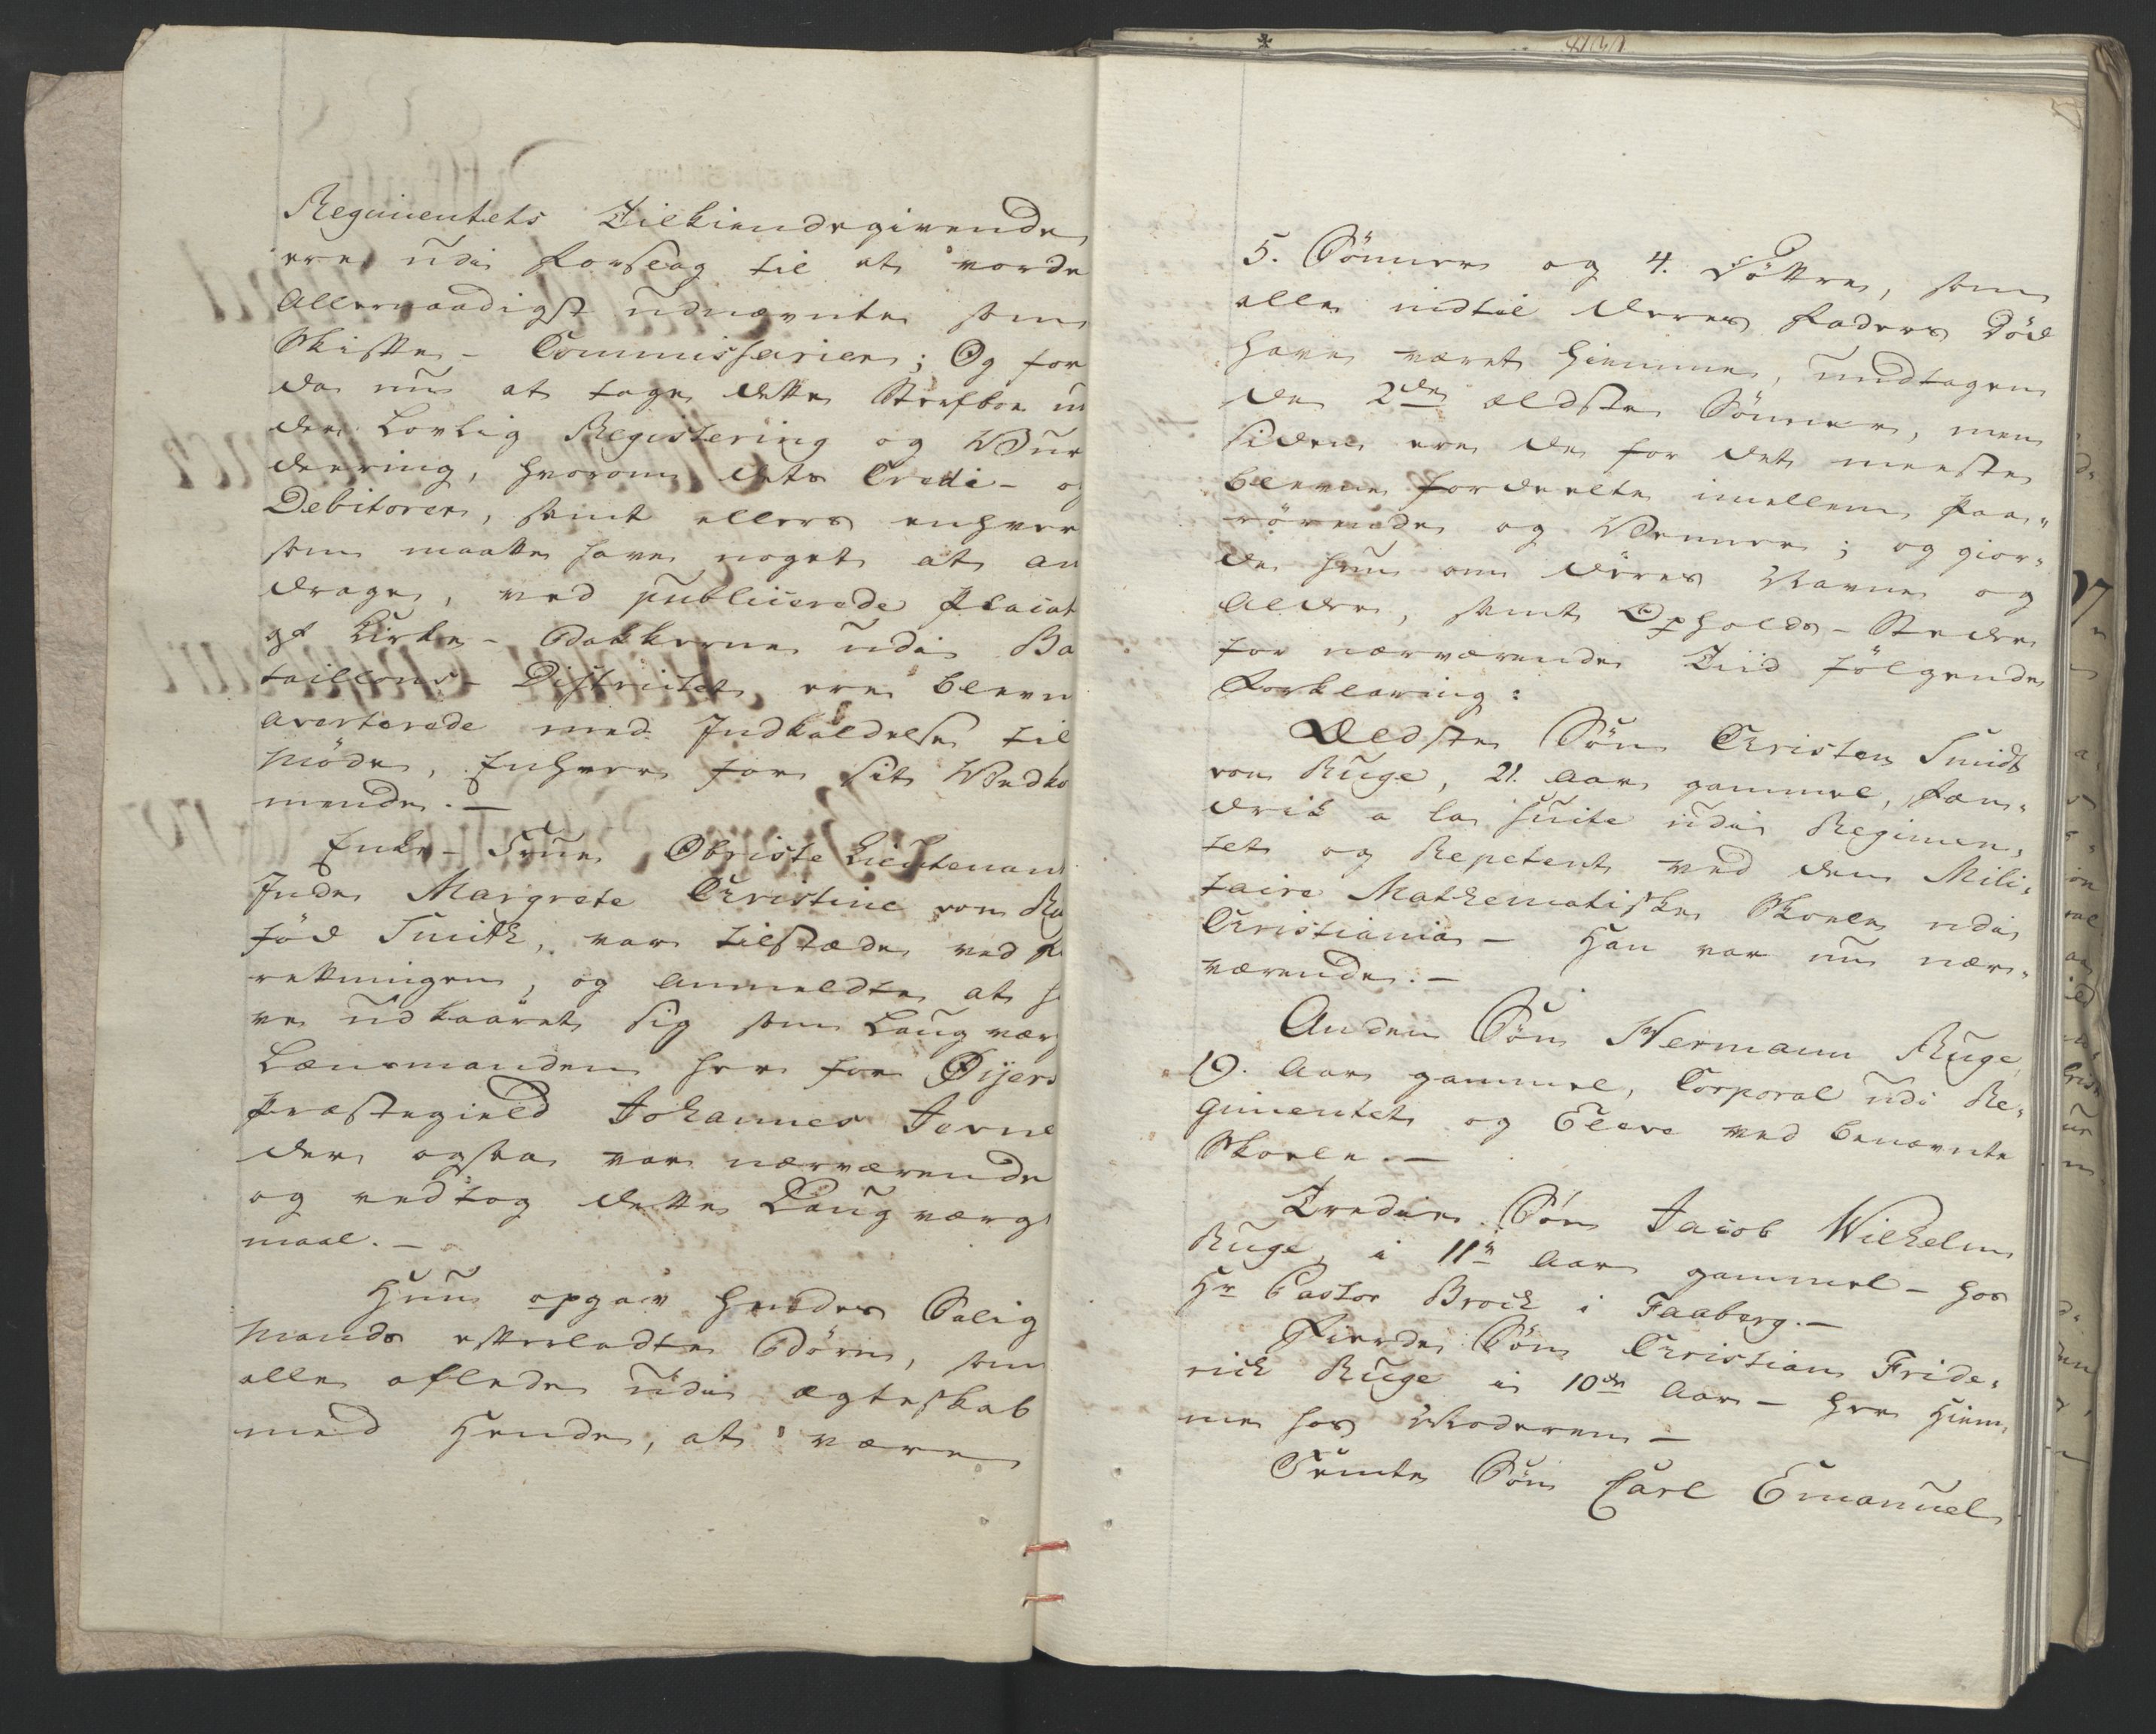 Regimentets Tilkiendegivende
ere udi Forslag til at vorde
Allernaadigst udnævnte som
Skifte- Commissarier; Og for
da nu at tage dette Sterfboe un
der Lovlig Registering og Vur
deering, hvorom dets Credi- og
Debitorer, samt ellers enhver
som maatte have noget at an
drage, ved publicerede Placat
af Kirke- Bakkerne udi Ba
taillons- Districtet ere blevne
averterede med Indkaldelse til
Møde, Enhver for sit Vedko
mende. —
Enke- Frue Obriste Lieutenant
Inde Margrete Christine von Ru
fød Smith, var tilstæde ved
rettningen, og anmeldte at
ve udkaaret sig som Laugværg
Lænsmanden her for Øijers
Præstegield Johannes Jevne
der ogsaa var nærværende
og vedtog dette Laugværge
maal. —
Hun opgav hendes Salig
Mands efterladte Børn, som
alle aflede udi ægteskab
med Hende, at være
5. Sönner og 4. Döttre, som
alle indtil deres Faders Död
have været hiemme, undtagen
de 2de ældste Sönner, men
siden ere de for det meeste
blevne fordeelte imellem Paa-
rörende og Venner; og gior-
de hun om deres Navne og
Alder, samt Opholds- Steder
for nærværende Tiid fölgende
Forklaring:
Ældste Sön Christen Smidt
von Ruge, 21. Aar gammel, Fæn-
drik a la Suite udi Regimen-
tet og Repetent ved den Mili-
taire Mathematiske Skoele udi
Christiania — Han var nu nær-
værende. —
Anden Sön Hermann Ruge
19. Aar gammel, Corporal udi Re-
gimentet og Eleve ved benævnte
Skoele. —
Tredie Sön Jacob Wilhelm
Ruge, i 11te Aar gammel — hos
Hr Pastor Broch i Faaberg. —
Fierde Sön Christian Fride-
rich Ruge i 10de Aar — her Hiem-
me hos Moderen —
Femte Sön Carl Emanuel